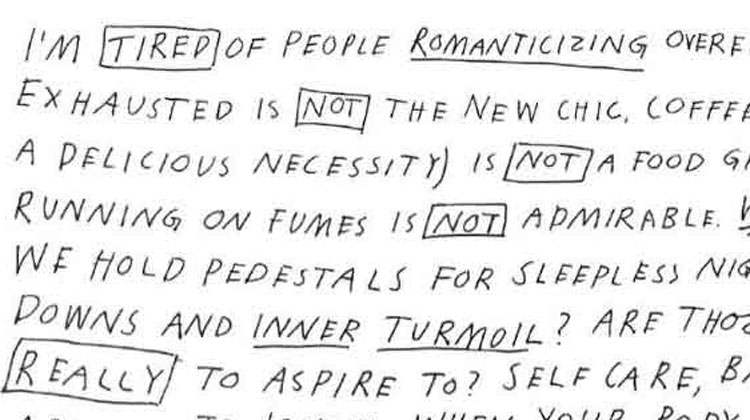 I'M TIRED OF PEOPLE ROMANTICIZING
EXHAUSTED IS NOT THE NEW CHIC.
A DELICIOUS NECESSITY) IS NOT A FOOD
RUNNING ON FUMES IS NOT ADMIRABLE.
WE HOLD PEDESTALS FOR SLEEPLESS
DOWNS AND INNER TURMOIL? ARE
REALLY TO ASPIRE TO? SELF CARE,
WHEN YOUR BODY